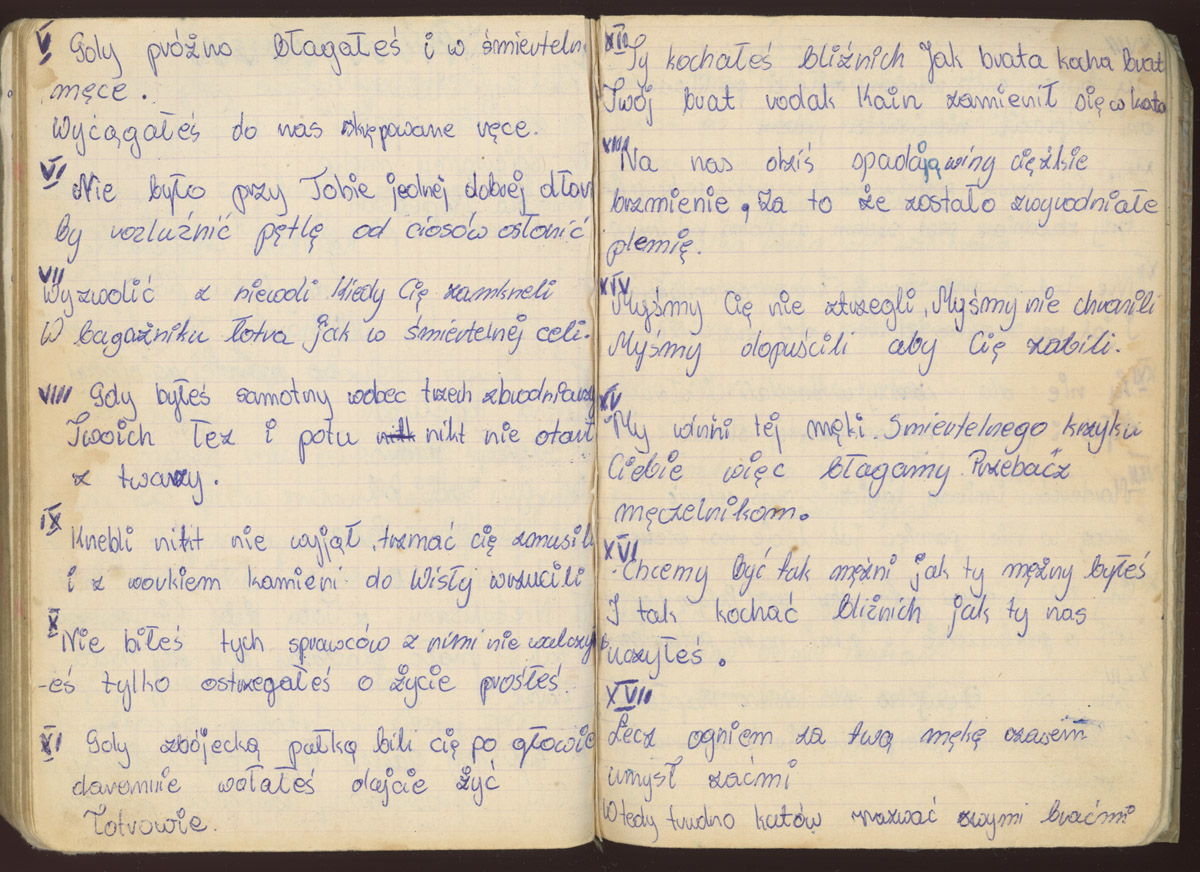 V Gdy próżno błagałeś i w śmierteln
męce.
Wyciągałeś do nas skrępowane ręce.
VI Nie było przy Tobie jednej dobrej dłon
by rozluźnić pętlę od ciosów osłonić
VII
Wyzwolić z niewoli kiedy Cię zamkneli
W bagażniku łotra jak w śmiertelnej celi.
VIII Gdy byłeś samotny wobec trzech zbrodniarzy
Twoich łez i potu nikt nie otarł
z twarzy.
IX Knebli nikt nie wyjął, trzmać cię zmusili
i z workiem kamieni do Wisły wrzucili
X Nie biłeś tych sprawców z nimi nie walczył
-eś tylko ostrzegałeś o życie prosiłeś.
XI Gdy zbójecką pałką bili cię po głowie
daremnie wołałeś dajcie żyć
łotrowie.
XII Ty kochałeś bliźnich Jak brata kocha brat
Twój brat rodak Kain zamienił się w kata
XIII Na nas dziś spadają winy ciężkie
brzmienie, Za to że zostało zwyrodniałe
plemię.
XIV
Myśmy Cię nie strzegli, Myśmy nie chronili
Myśmy dopuścili aby Cię zabili.
XV
My winni tej męki. Śmiertelnego krzyku
Ciebie więc błagamy Przebacz
męczelnikom.
XVI
-Chcemy być tak mężni jak ty mężny byłeś
I tak kochać bliźnich jak ty nas
uczyłeś.
XVII
Lecz ogniem za twą mękę czasem
umysł zaćmi
Wtedy trudno katów nazwać swymi braćmi